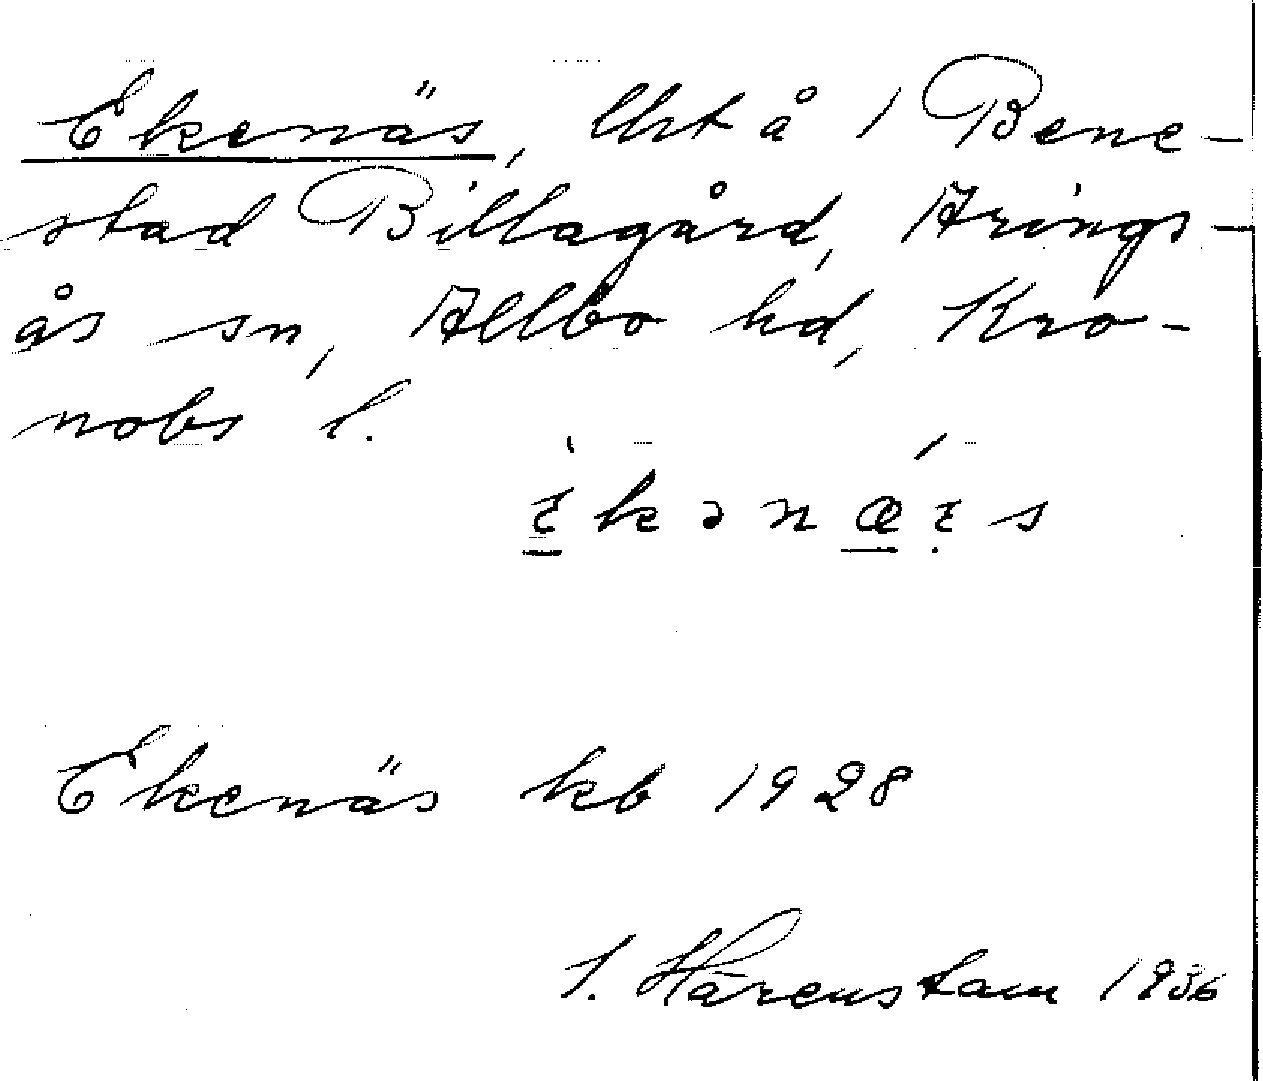 Ekenäs, lht å 1 Bene-
stad Billagård, Arings-
ås sn, Allbo hd, Kro-
nobs l.
Ekenäs kb 1928
S. Härenstam 1936